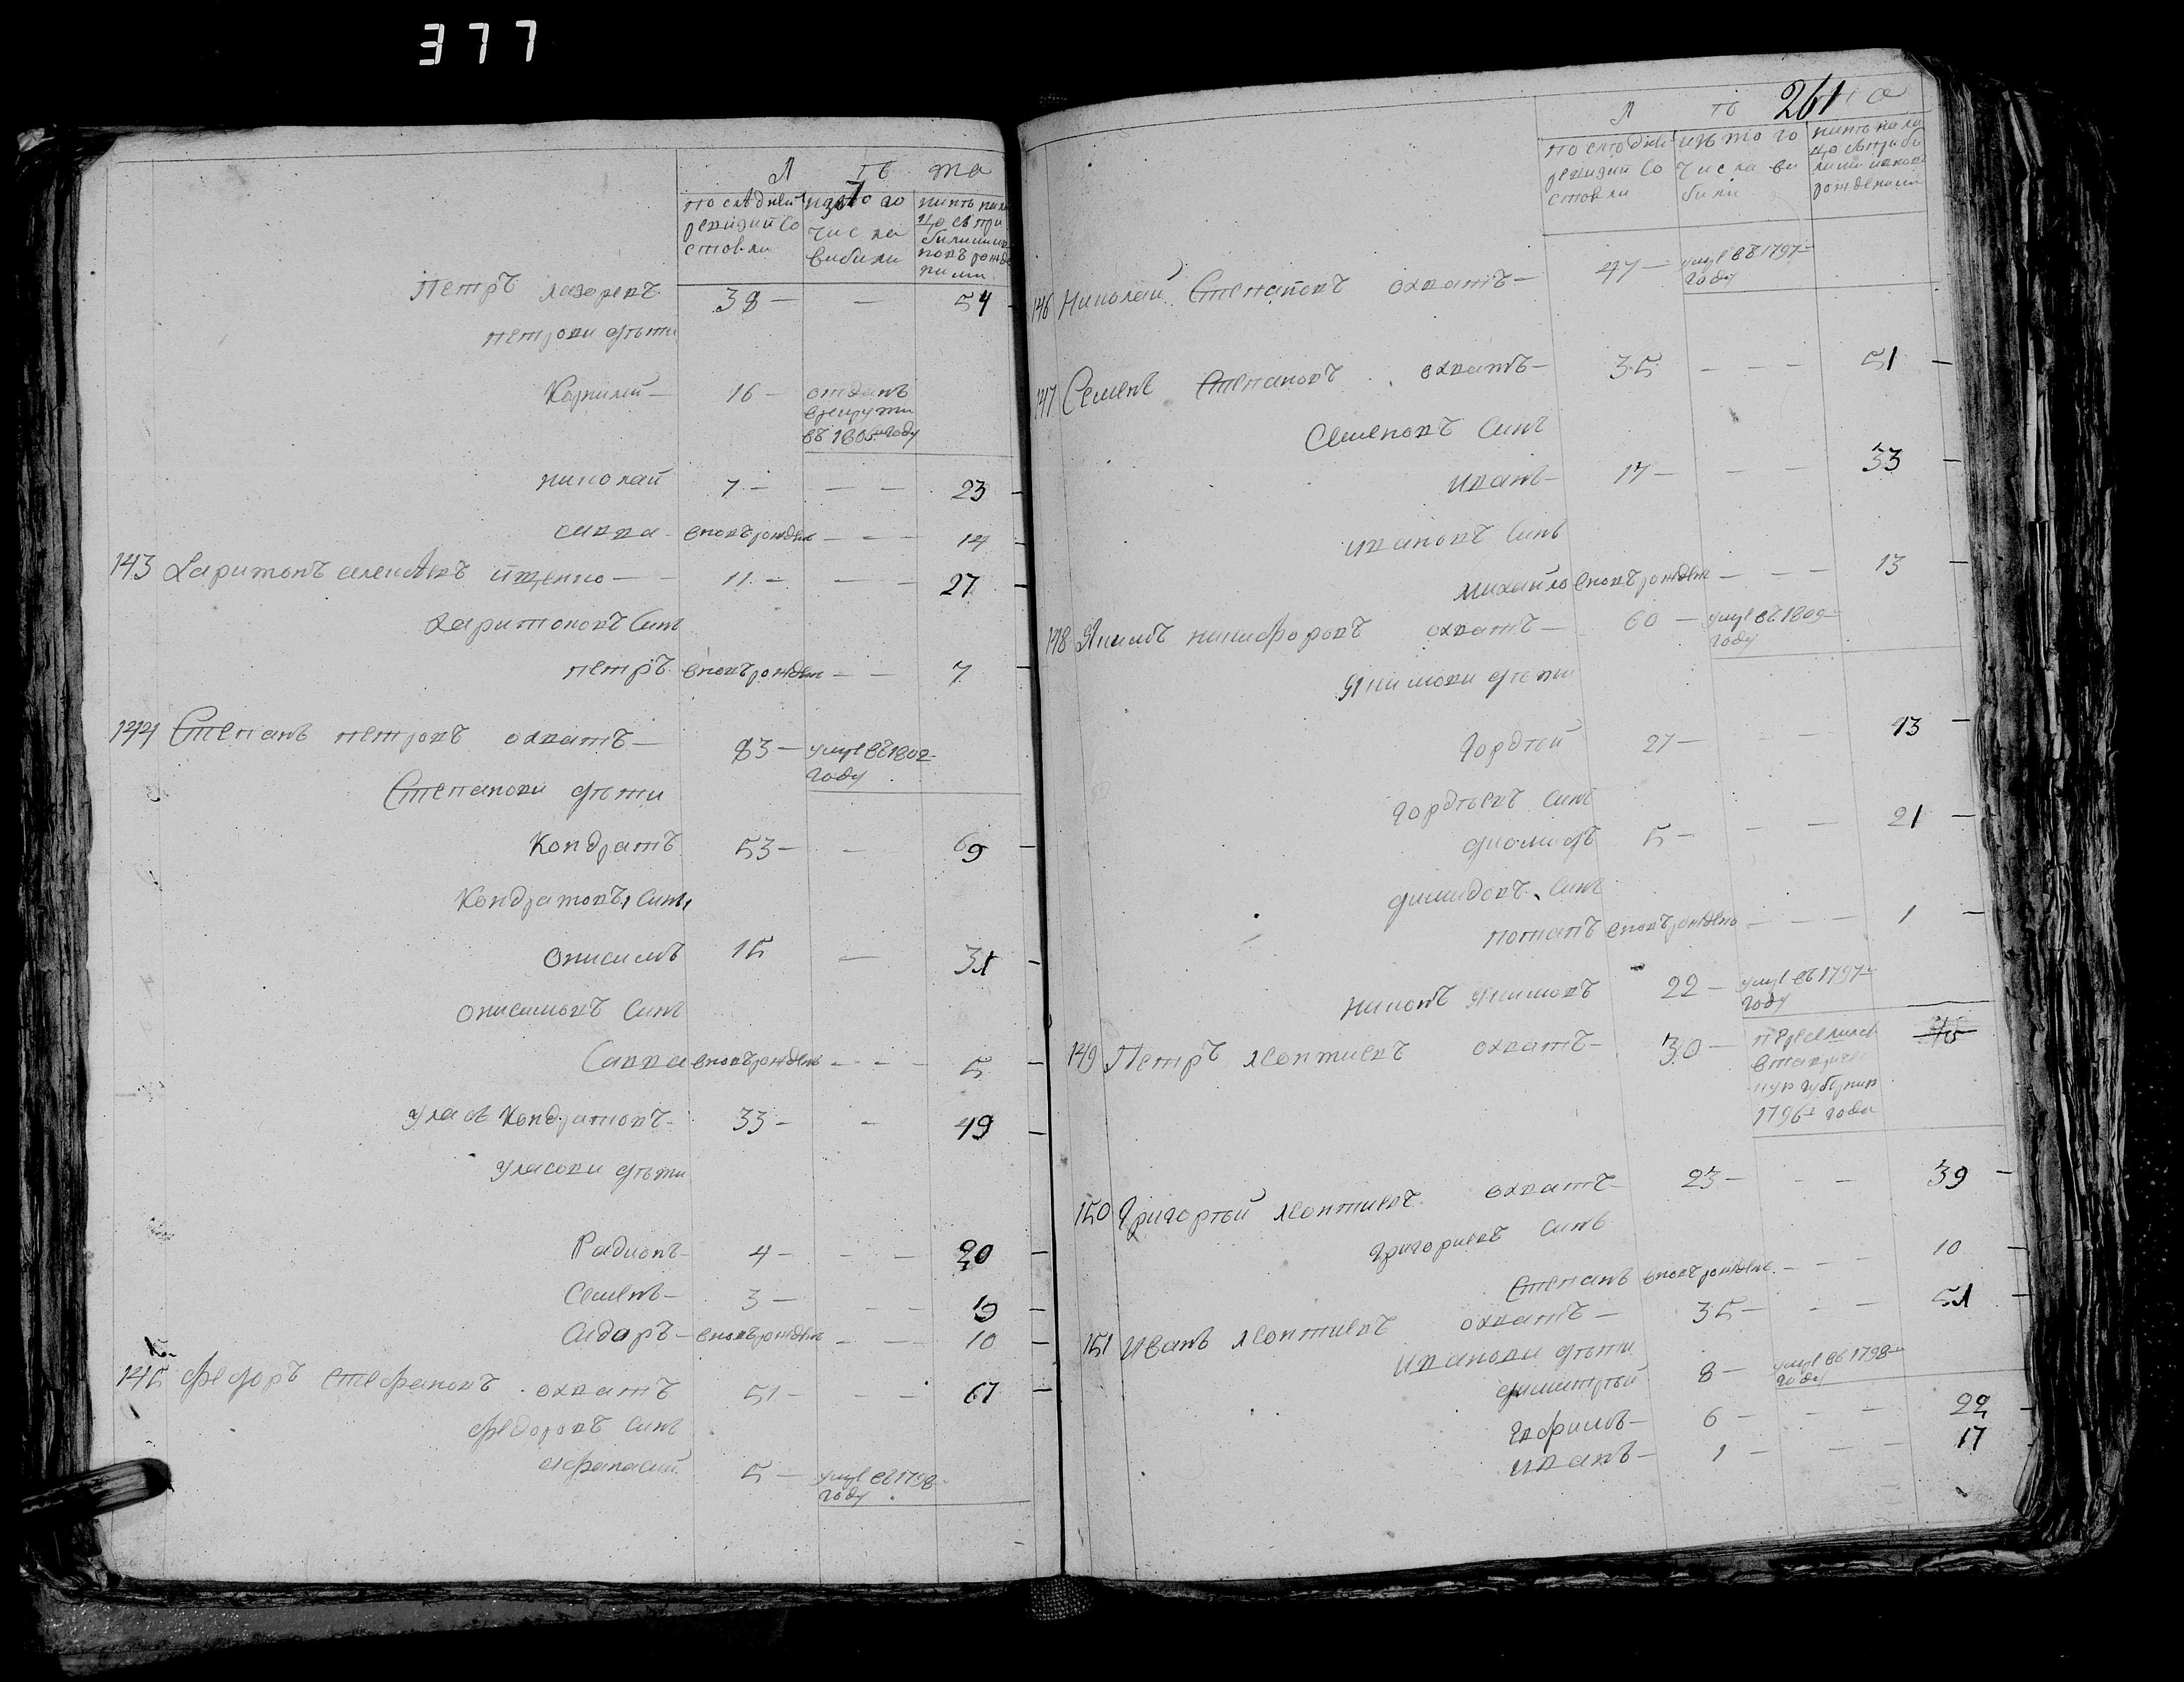 377
Л ѣ та
по слѣдней ревизии со стояли
из того числа выбыли
Петръ Лазоревъ 38 — — 54
Петровы дѣти
Корнилий — 16 — отданъ
в рекруты
въ 1805 году
Николай 7 — — — 23
Савва вновь рожден — — 14
143 Харитонъ Алексѣевъ Ищенко — 11 — — — 27
Харитоновъ сынъ
Петръ вновь рожден — — 7
144 Степанъ Петровъ Охватъ — 83 — умре въ 1802
году
Степановы дѣти
Кондратъ 53 — — 69
Кондратовъ сынъ
Онисимъ 15 — 31
Онисимовъ сынъ
Савва вновь рожденъ — — — 5
Уласъ Кондратовъ — 33 — — 49
Уласовы дѣти
Радионъ — 4 — — — 20
Семенъ — 3 — — — 19
Сидоръ — вновь рожден — — 10
145 Федоръ Стефановъ Охватъ 51 — — — 67
Федоровъ сынъ
Афанасий 5 — умре въ 1798
году
261
Л ѣ та
по слѣдней ревизии со стояли
из того числа вы были
146 Николай Степановъ Охватъ — 47 — умре въ 1797
году
147 Семенъ Степановъ Охватъ — 35 — — — 51 —
Семеновъ сынъ
Иванъ — 17 — — — 33 —
Ивановъ сынъ
Михайло вновь рожден — — — 13 —
148 Якимъ Никифоровъ Охватъ — 60 — умре въ 1809
году
Якимовы дѣти
Гордѣй 27 — — — 43 —
Гордѣевъ сынъ
Диомидъ 5 — — — 21 —
Димидовъ сынъ
Потапъ вновь рожденъ — — — 1 —
Никонъ Якимовъ 22 — умре въ 1797
году
149 Петръ Леонтиевъ Охватъ — 30 — переселился
в Таврическую
губернию
1796 года
150 Григорѣй Леонтиевъ Охватъ — 23 — — — 39 —
Григориевъ сынъ
Степанъ вновь рожден — — — 10 —
151 Иванъ Леонтиевъ Охватъ — 35 — — — 51 —
Ивановы дѣти
Димитрѣй 8 — умре въ 1798
году
Евфимъ — 6 — — — 22 —
Иванъ — 1 — — — 17 —